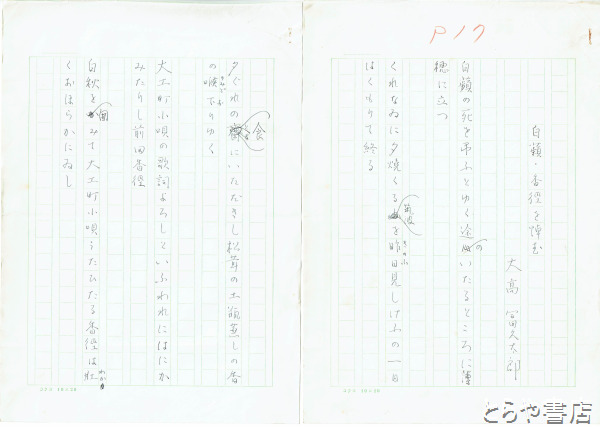 P17
白籟・香徑を悼む
大高冨久太郎
白籟の死を弔ふとゆく途のいたるところに曼
穂に立つ
くれなゐに夕焼くる筑波を昨日見しけふの一日
きのふ
はくもりて終る
夕ぐれの食にいただきし松茸の土瓶蒸しの香
の喉下りゆく
大工町小唄の歌詞よろしといふわれにはにか
みたりし前田香徑
白秋を囲みて大工町小唄うたひたる香徑は
わか
くおほらかにゐし
コクヨ 10×20
コクヨ 10×20
とらや書店